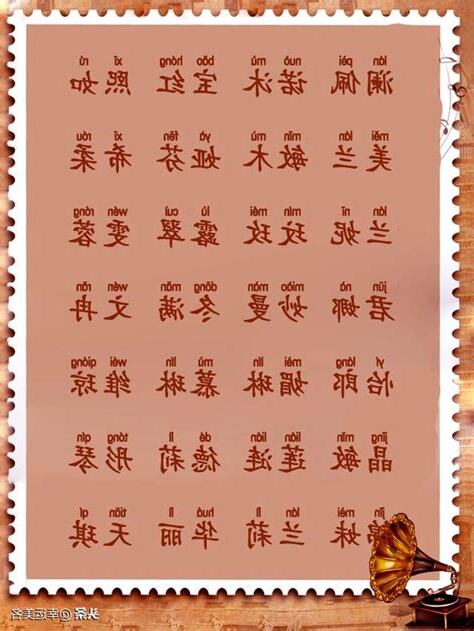 lán pèi nuò mù bǎo hóng xī rú
澜佩 诺沐 宝红 熙如
měi lán mǐn mù yà fēn xī róu
美兰 敏木 娅芬 希柔
lán nī mín méi lù cuì wén róng
兰妮 玟玫 露翠 雯蓉
jūn nà miào màn dōng mǎn wén rǎn
君娜 妙曼 冬满 文冉
yí láng mèi lín mù lín wéi qióng
怡郎 媚琳 慕琳 维琼
jīng mǐn lián lián dé lì tóng qín
晶敏 莲涟 德莉 彤琴
jǐn mèi lán lì huá lì tiān qí
锦妹 兰莉 华丽 天琪
头条@幸运美名